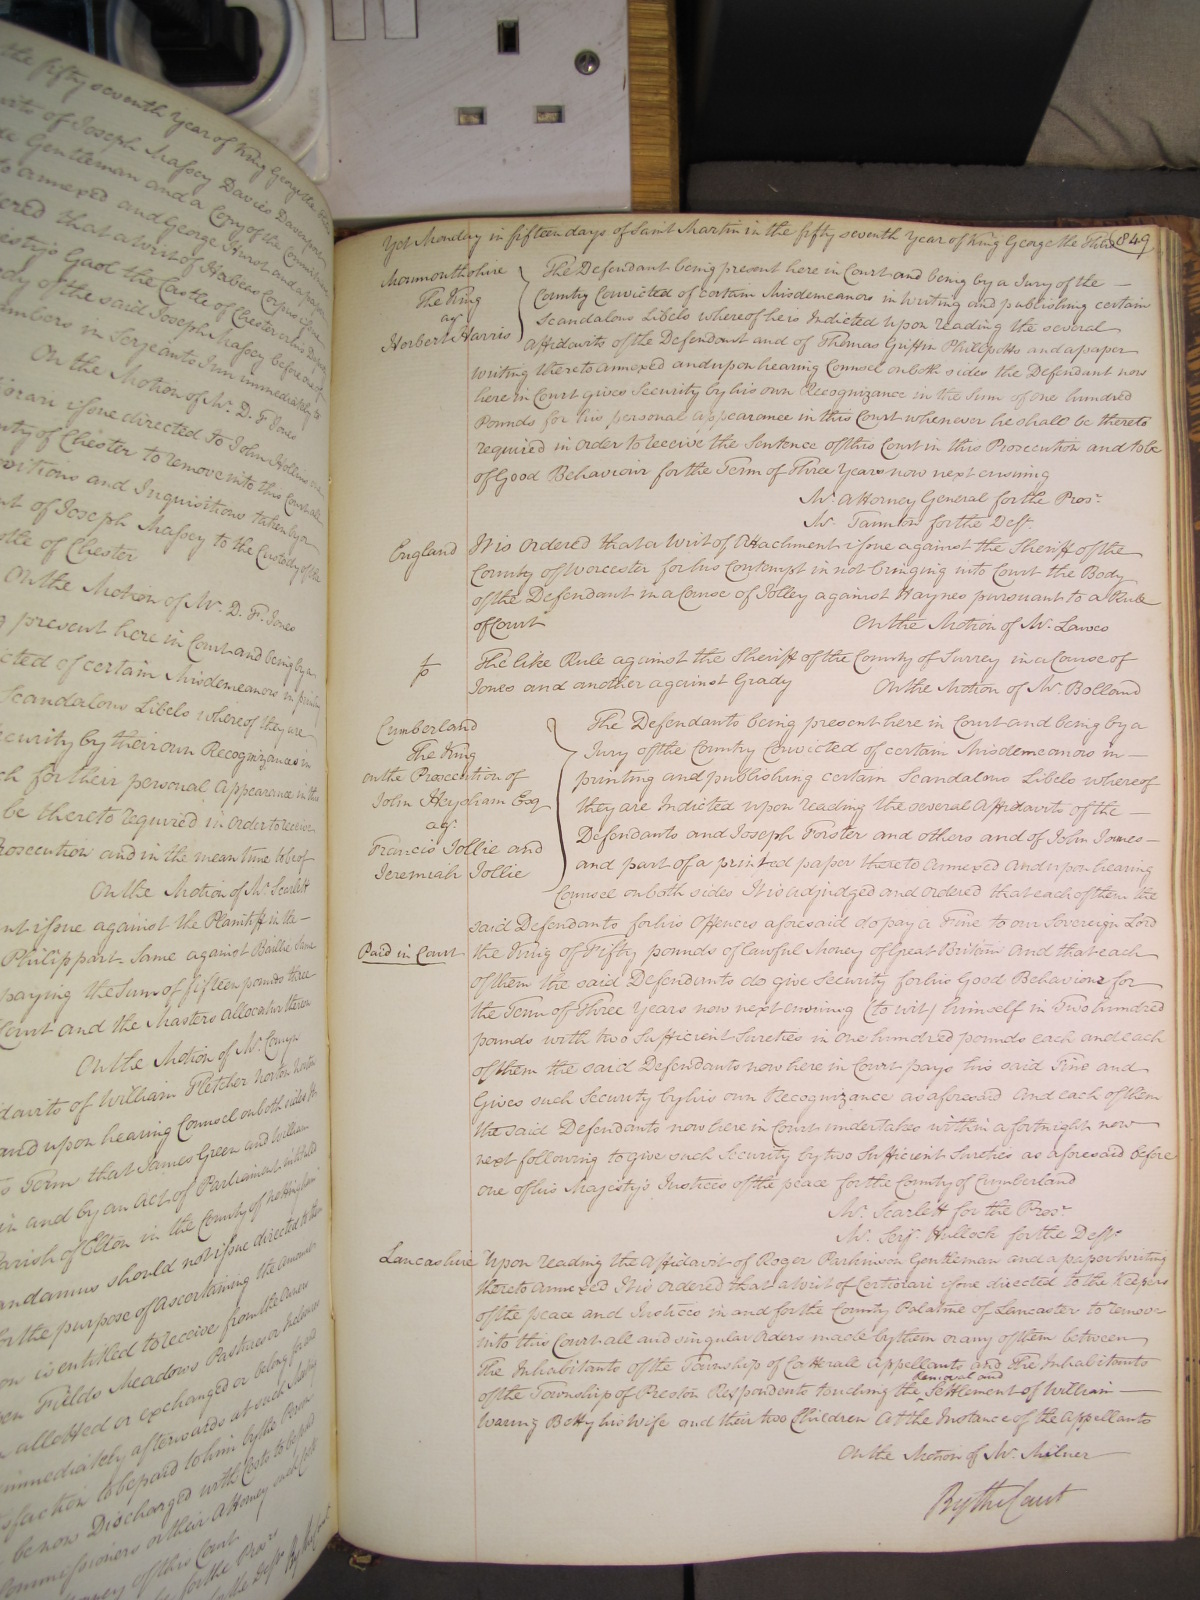 the fifty seventh Year of King George the Third
of Joseph Massey Davies Davenport
Gentleman and a Copy of the Commitment
to annexed and George Hurst and a paper
ordered that a Writ of Habeas Corpus issue
Majesty's Gaol the Castle of Chester
Body of the said Joseph Massey before
Chambers in Serjeants Inn immediately
On the Motion of Mr. D. F. Jones
issue directed to John Hollins
County of Chester to remove into this Court all
and Inquisitions taken by or
of Joseph Massey to the Custody of the
Castle of Chester
On the Motion of Mr. D. F. Jones
present here in Court and being by a
of certain Misdemeanors in
Scandalous Libels whereof they are
Security by their own Recognizances in
for their personal Appearance in this
be thereto required in order to receive
Prosecution and in the mean time to be of
On the Motion of Mr. Scarlett
issue against the Plaintiff in the
Philippart Same against Baillie Same
paying the Sum of fifteen pounds three
Court and the Masters allocatur thereon
On the Motion of Mr. Comyn
of William Fletcher Norton Norton
and upon hearing Counsel on both sides It
Term that James Green and William
in and by an Act of Parliament intituled
Parish of Elton in the County of Nottingham
Mandamus should not issue directed to them
for the purpose of ascertaining the amount
is entitled to receive from the
Fields Meadows Pastures or
allotted or exchanged or
immediately afterwards
to be paid to him by the
be now Discharged with Costs to be
Commissioners or their Attorney and
of this Court
for the Prosr.
By the Court
Yet Monday in fifteen days of Saint Martin in the fifty seventh Year of King George the Third 849
Monmouthshire
The King
agt.
Herbert Harris
The Defendant being present here in Court and being by a Jury of the
Country Convicted of certain Misdemeanors in Writing and publishing certain
Scandalous Libels whereof he is Indicted upon reading the several
Affidavits of the Defendant and of Thomas Griffin Phillpotts and a paper
Writing thereto annexed and upon hearing Counsel on both sides the Defendant now
here in Court gives Security by his own Recognizance in the Sum of one hundred
Pounds for his personal appearance in this Court whenever he shall be thereto
required in order to receive the Sentence of this Court in this Prosecution and to be
of Good Behaviour for the Term of Three Years now next ensuing
Mr. Attorney General for the Prosr.
Mr. Taunton for the Deft.
England It is Ordered that a Writ of Attachment issue against the Sheriff of the
County of Worcester for his Contempt in not bringing into Court the Body
of the Defendant in a Cause of Jolley against Haynes pursuant to a Rule
of Court On the Motion of Mr. Lawes
The like Rule against the Sheriff of the County of Surrey in a Cause of
Jones and another against Grady On the Motion of Mr. Bolland
Cumberland
The King
on the Prosecution of
John Heysham Esq
agt.
Francis Jollie and
Jeremiah Jollie
The Defendants being present here in Court and being by a
Jury of the Country Convicted of certain Misdemeanors in
printing and publishing certain Scandalous Libels whereof
they are Indicted upon reading the several Affidavits of the
Defendants and Joseph Forster and others and of John Jones
and part of a printed paper thereto annexed and upon hearing
Counsel on both sides It is adjudged and ordered that each of them the
said Defendants for his Offences aforesaid do pay a Fine to our Sovereign Lord
Paid in Court the King of Fifty pounds of lawful Money of Great Britain and that each
of them the said Defendants do give Security for his Good Behaviour for
the Term of Three Years now next ensuing (to wit) himself in Two hundred
pounds with two Sufficient Sureties in one hundred pounds each and each
of them the said Defendants now here in Court pays his said Fine and
Gives such Security by his own Recognizance as aforesaid and each of them
the said Defendants now here in Court undertakes within a fortnight now
next following to give such Security by two Sufficient Sureties as aforesaid before
one of his Majesty's Justices of the peace for the County of Cumberland
Mr. Scarlett for the Prosr.
Mr. Serjt. Hullock for the Defts.
Lancashire Upon reading the Affidavit of Roger Parkinson Gentleman and a paper writing
thereto annexed It is ordered that a Writ of Certiorari issue directed to the Keepers
of the peace and Justices in and for the County Palatine of Lancaster to remove
into this Court all and singular Orders made by them or any of them between
The Inhabitants of the Township of Catterall Appellants and The Inhabitants
Removal and
of the Township of Preston Respondents touching the Settlement of William
Waring Betty his Wife and their two Children At the Instance of the Appellants
On the Motion of Mr. Milner
By the Court